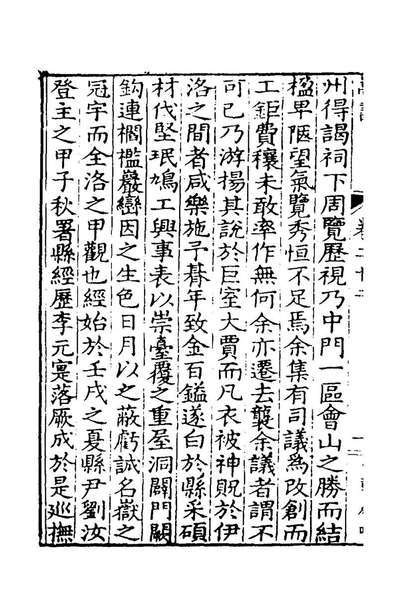 州得謁祠下周覽歷視乃中門一區會山之勝而結
楹卑陋望氣覽秀恒不足焉余集有司議爲改創而
工鉅費穰未敢率作無何余亦遷去襲余議者謂不
可已乃游揚其說於巨室大賈而凡衣被神貺於伊
洛之間者咸樂施予朞年致金百鎰遂白於縣采碩
材伐堅珉鳩工興事表以崇臺覆之重屋洞闢門闕
鈎連櫊檻巖巒因之生色日月以之蔽虧誠名嶽之
冠宇而全洛之甲觀也經始於壬戌之夏縣尹劉汝
登主之甲子秋署縣經歷李元寔落厥成於是廵撫
卷二十二